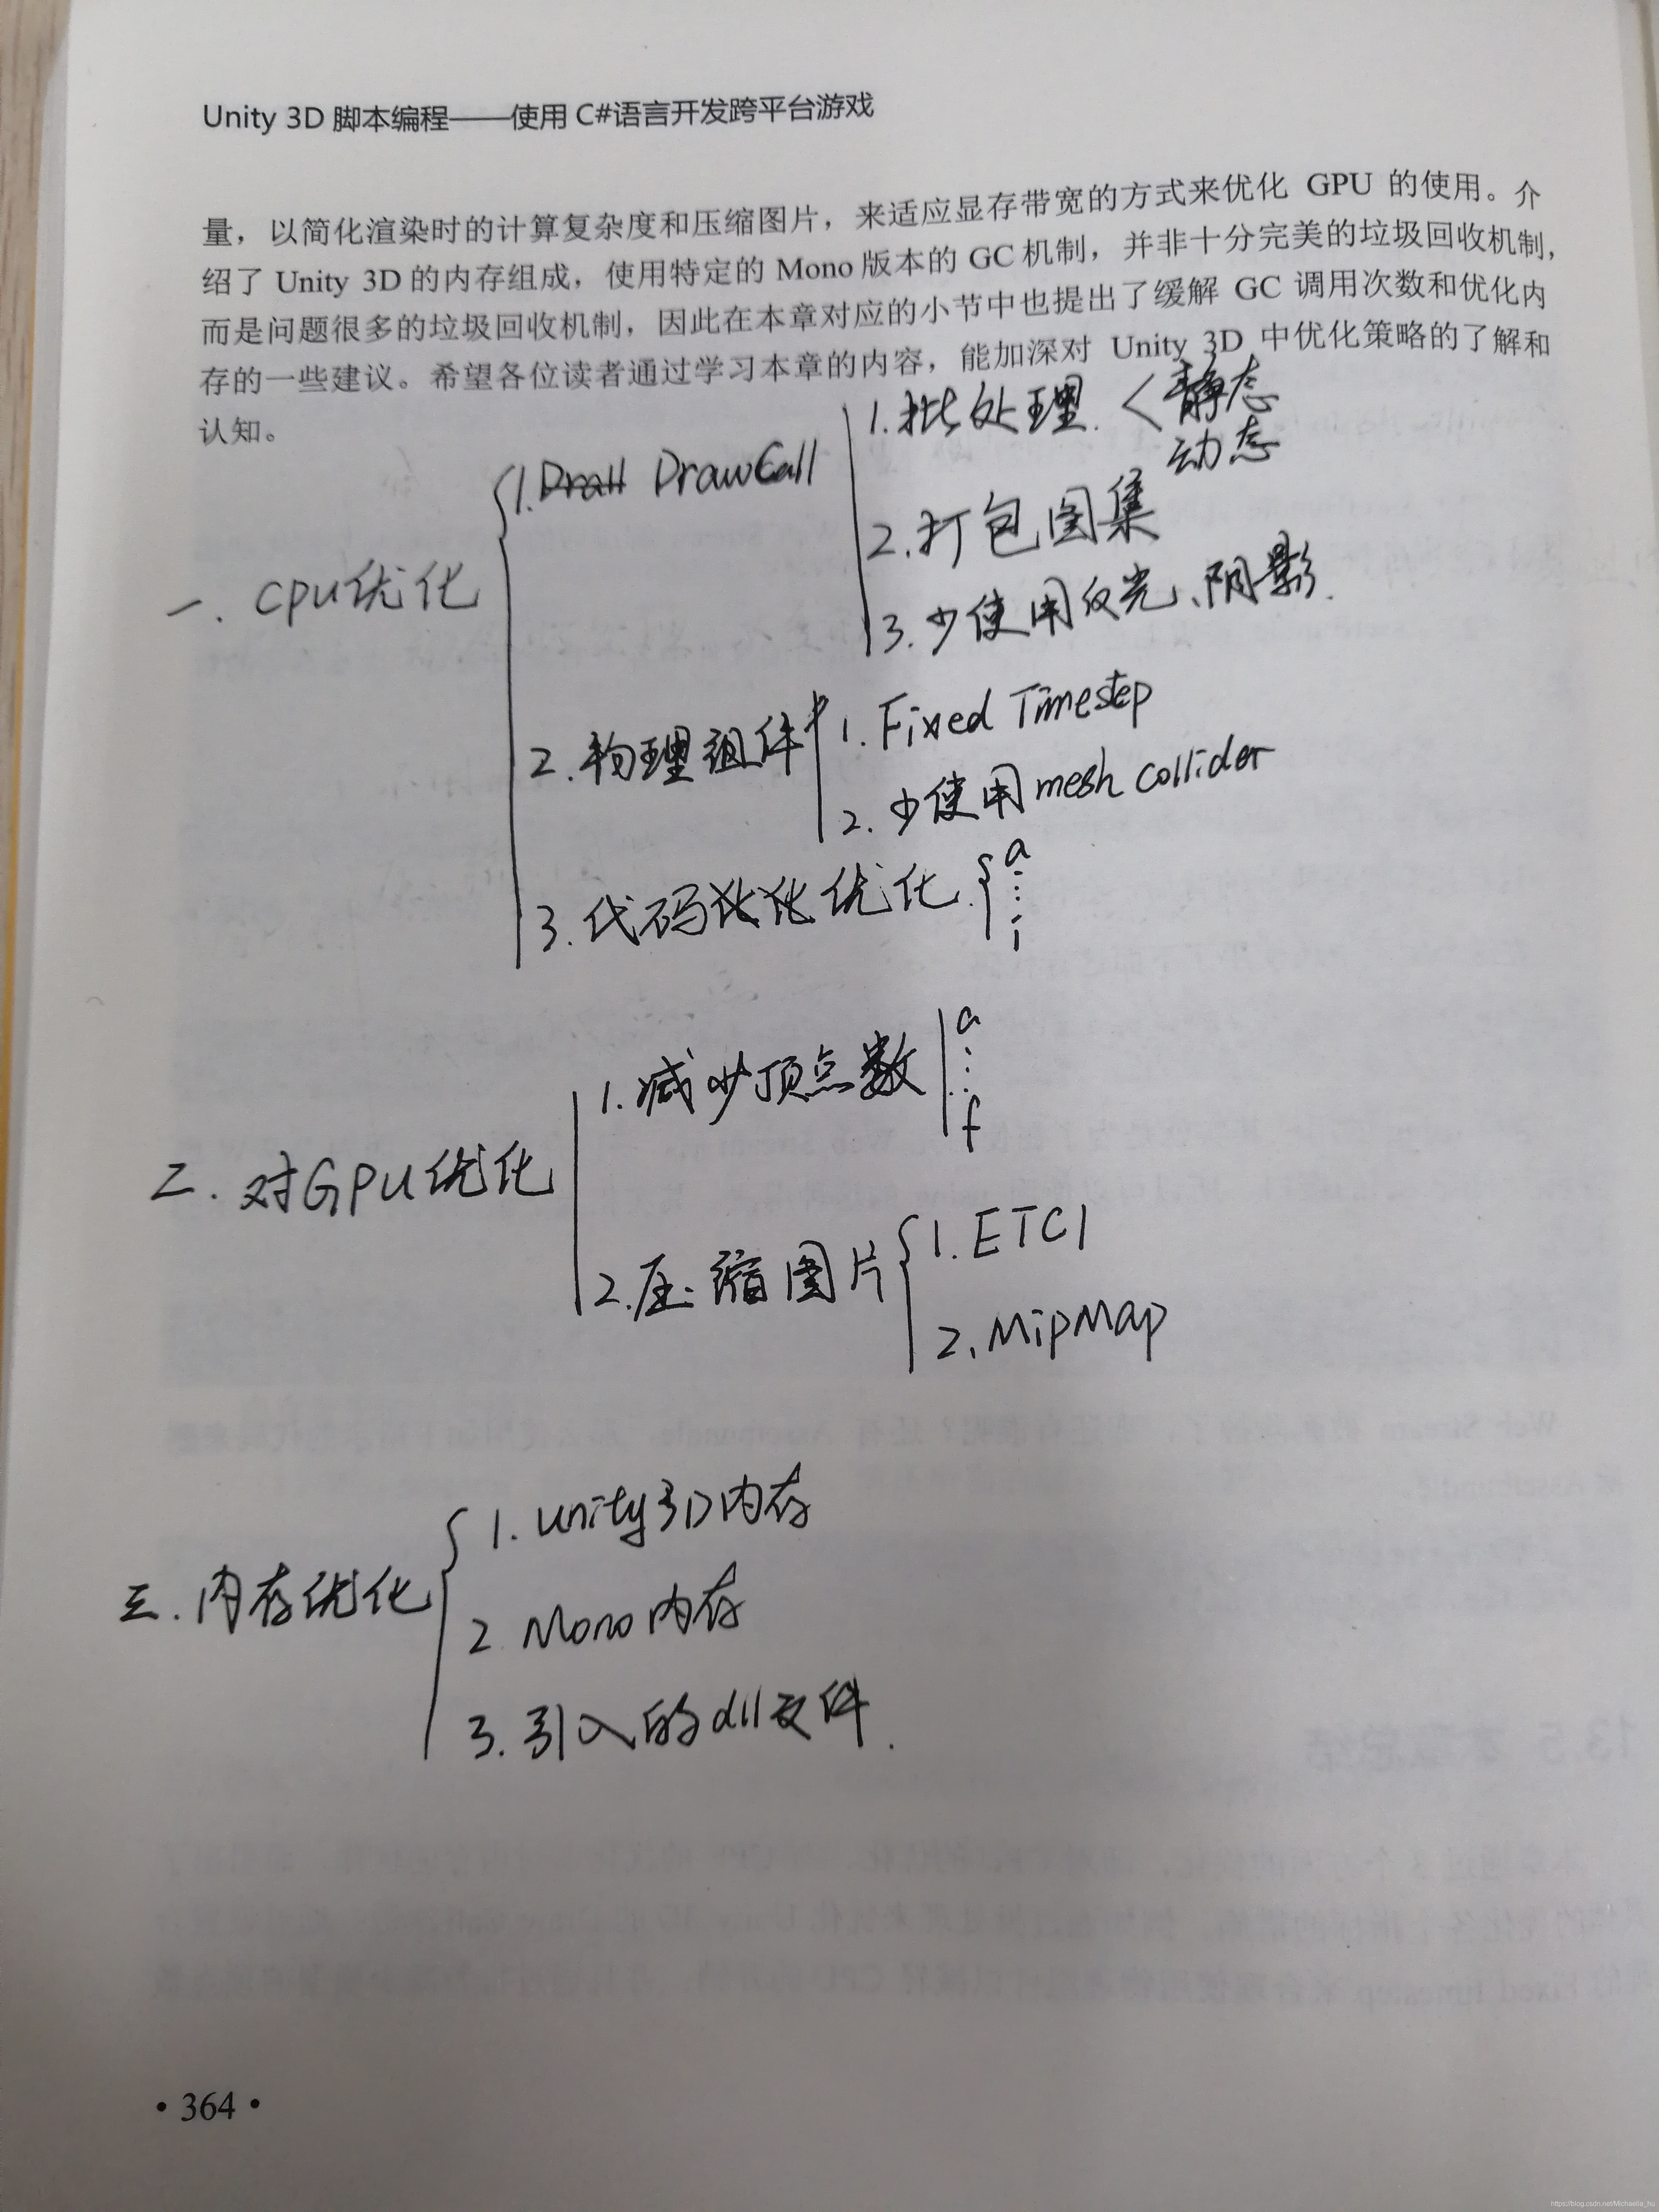 Unity 3D 脚本编程——使用 C#语言开发跨平台游戏
量，以简化渲染时的计算复杂度和压缩图片，来适应显存带宽的方式来优化 GPU 的使用。介
绍了 Unity 3D 的内存组成，使用特定的 Mono 版本的 GC 机制，并非十分完美的垃圾回收机制，
而是问题很多的垃圾回收机制，因此在本章对应的小节中也提出了缓解 GC 调用次数和优化内
存的一些建议。希望各位读者通过学习本章的内容，能加深对 Unity 3D 中优化策略的了解和
认知。
一. CPU优化
1. DrawCall
1. 批处理. < 静态
动态
2. 打包图集
3. 少使用反光、阴影.
2. 物理组件
1. Fixed Timestep
2. 少使用 mesh collider
3. 代码优化. { a
⋮
i
二. 对GPU优化
1. 减少顶点数
a
⋮
f
2. 压缩图片
1. ETC1
2. MipMap
三. 内存优化
1. unity3D内存
2 Mono内存
3. 引入的dll文件.
·364·
https://blog.csdn.net/Michaelia_hu